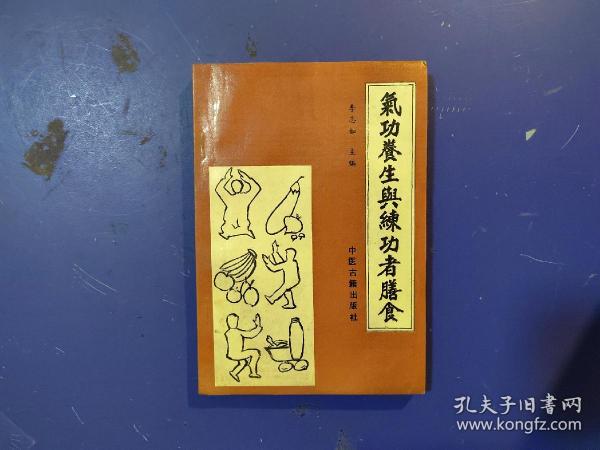 氣功養生與練功者膳食
李志如 主编
中医古籍出版社
孔夫子旧书网
www.kongfz.com